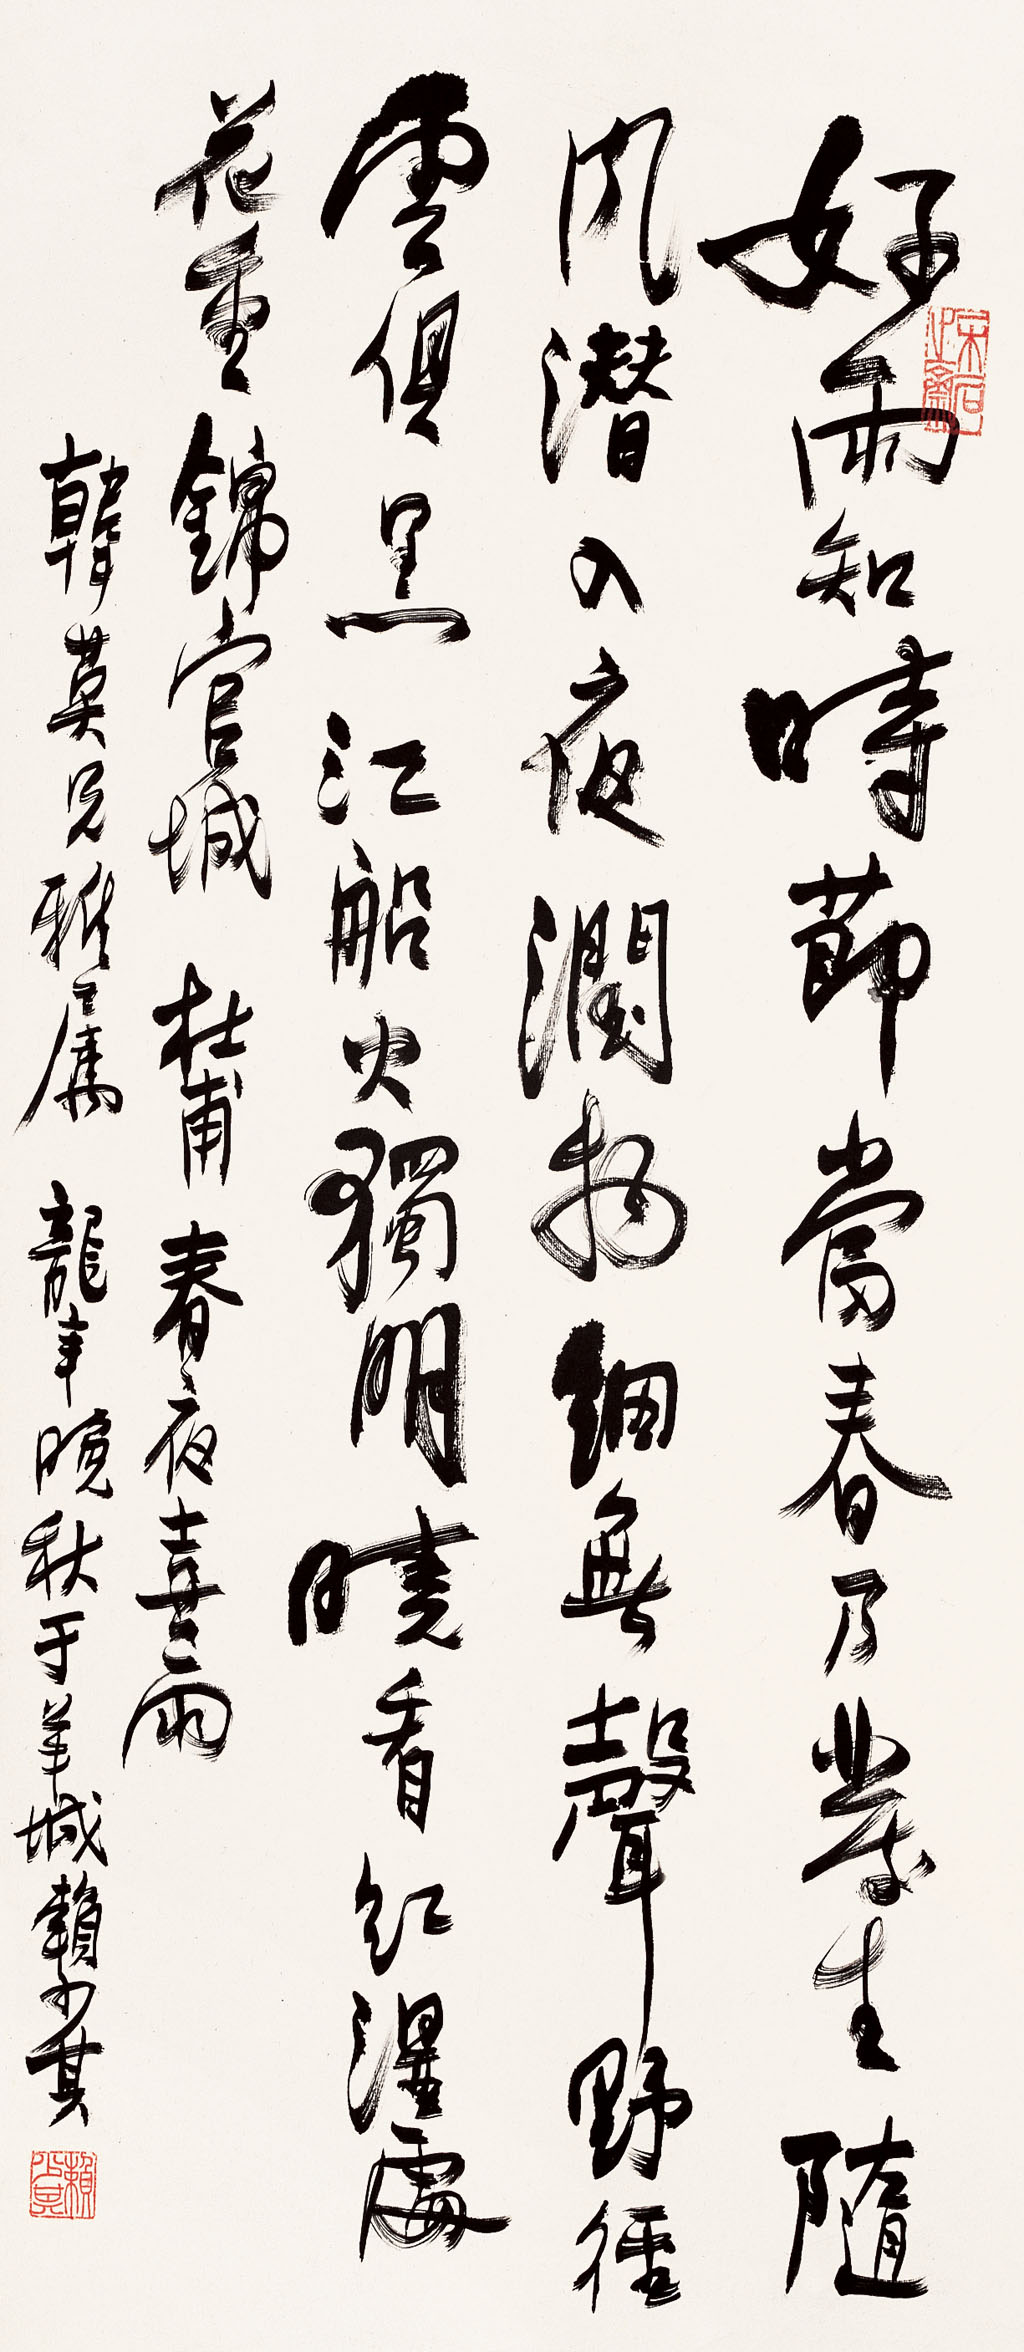 好雨知時節當春乃發生隨
風潛入夜潤物細無聲野徑
雲俱黑江船火獨明曉看紅濕處
花重錦官城 杜甫 春夜喜雨
韓莫兄雅屬 龍年晚秋于羊城賴少其
賴少其